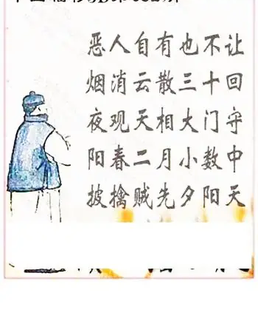 恶人自有也不让
烟消云散三十回
夜观天相大门守
阳春二月小数中
披擒贼先夕阳天